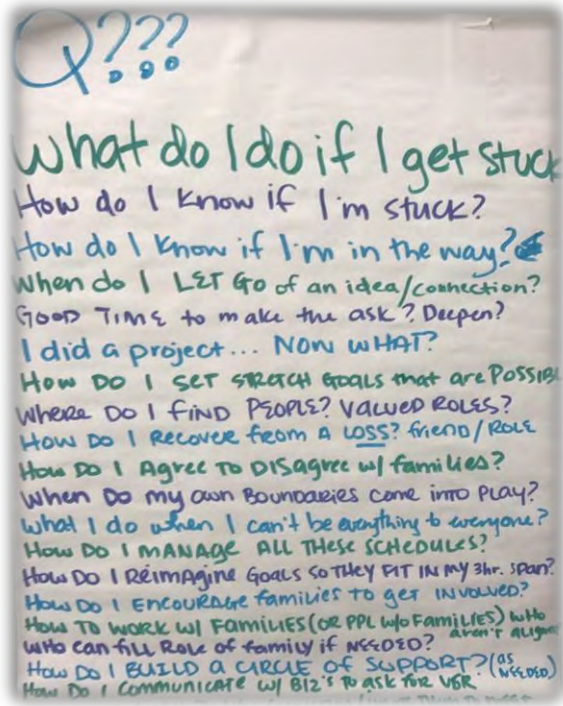 Q???
What do I do if I get stuck
How do I know if I'm stuck?
How do I know if I'm in the way?
When do I LET GO of an idea/connection?
GOOD TIME to make the ask? Deepen?
I did a project... NOW WHAT?
How DO I SET STRETCH GOALS that are POSSIBL
WHERE DO I FIND PEOPLE? VALUED ROLES?
HOW DO I RECOVER from A LOSS? friend/ROLE
How DO I AGREE TO DISAGREE w/ families?
WHEN DO my own BOUNDARIES come into PLAY?
What I do when I can't be everything to everyone?
How DO I MANAGE ALL THESE SCHEDULES?
How DO I REIMAGINE GOALS SO THEY FIT IN MY 3hr. span?
How DO I ENCOURAGE families to get INVOLVED?
HOW TO WORK W/ FAMILIES (OR PPL W/O FAMILIES) WHO
aren't aligne
WHO CAN fill ROLE of family if NEEDED?
HOW DO I BUILD A CIRCLE OF SUPPORT? (as NEEDED)
HOW DO I COMMUNICATE W/ BIZ'S TO ASK FOR VSR